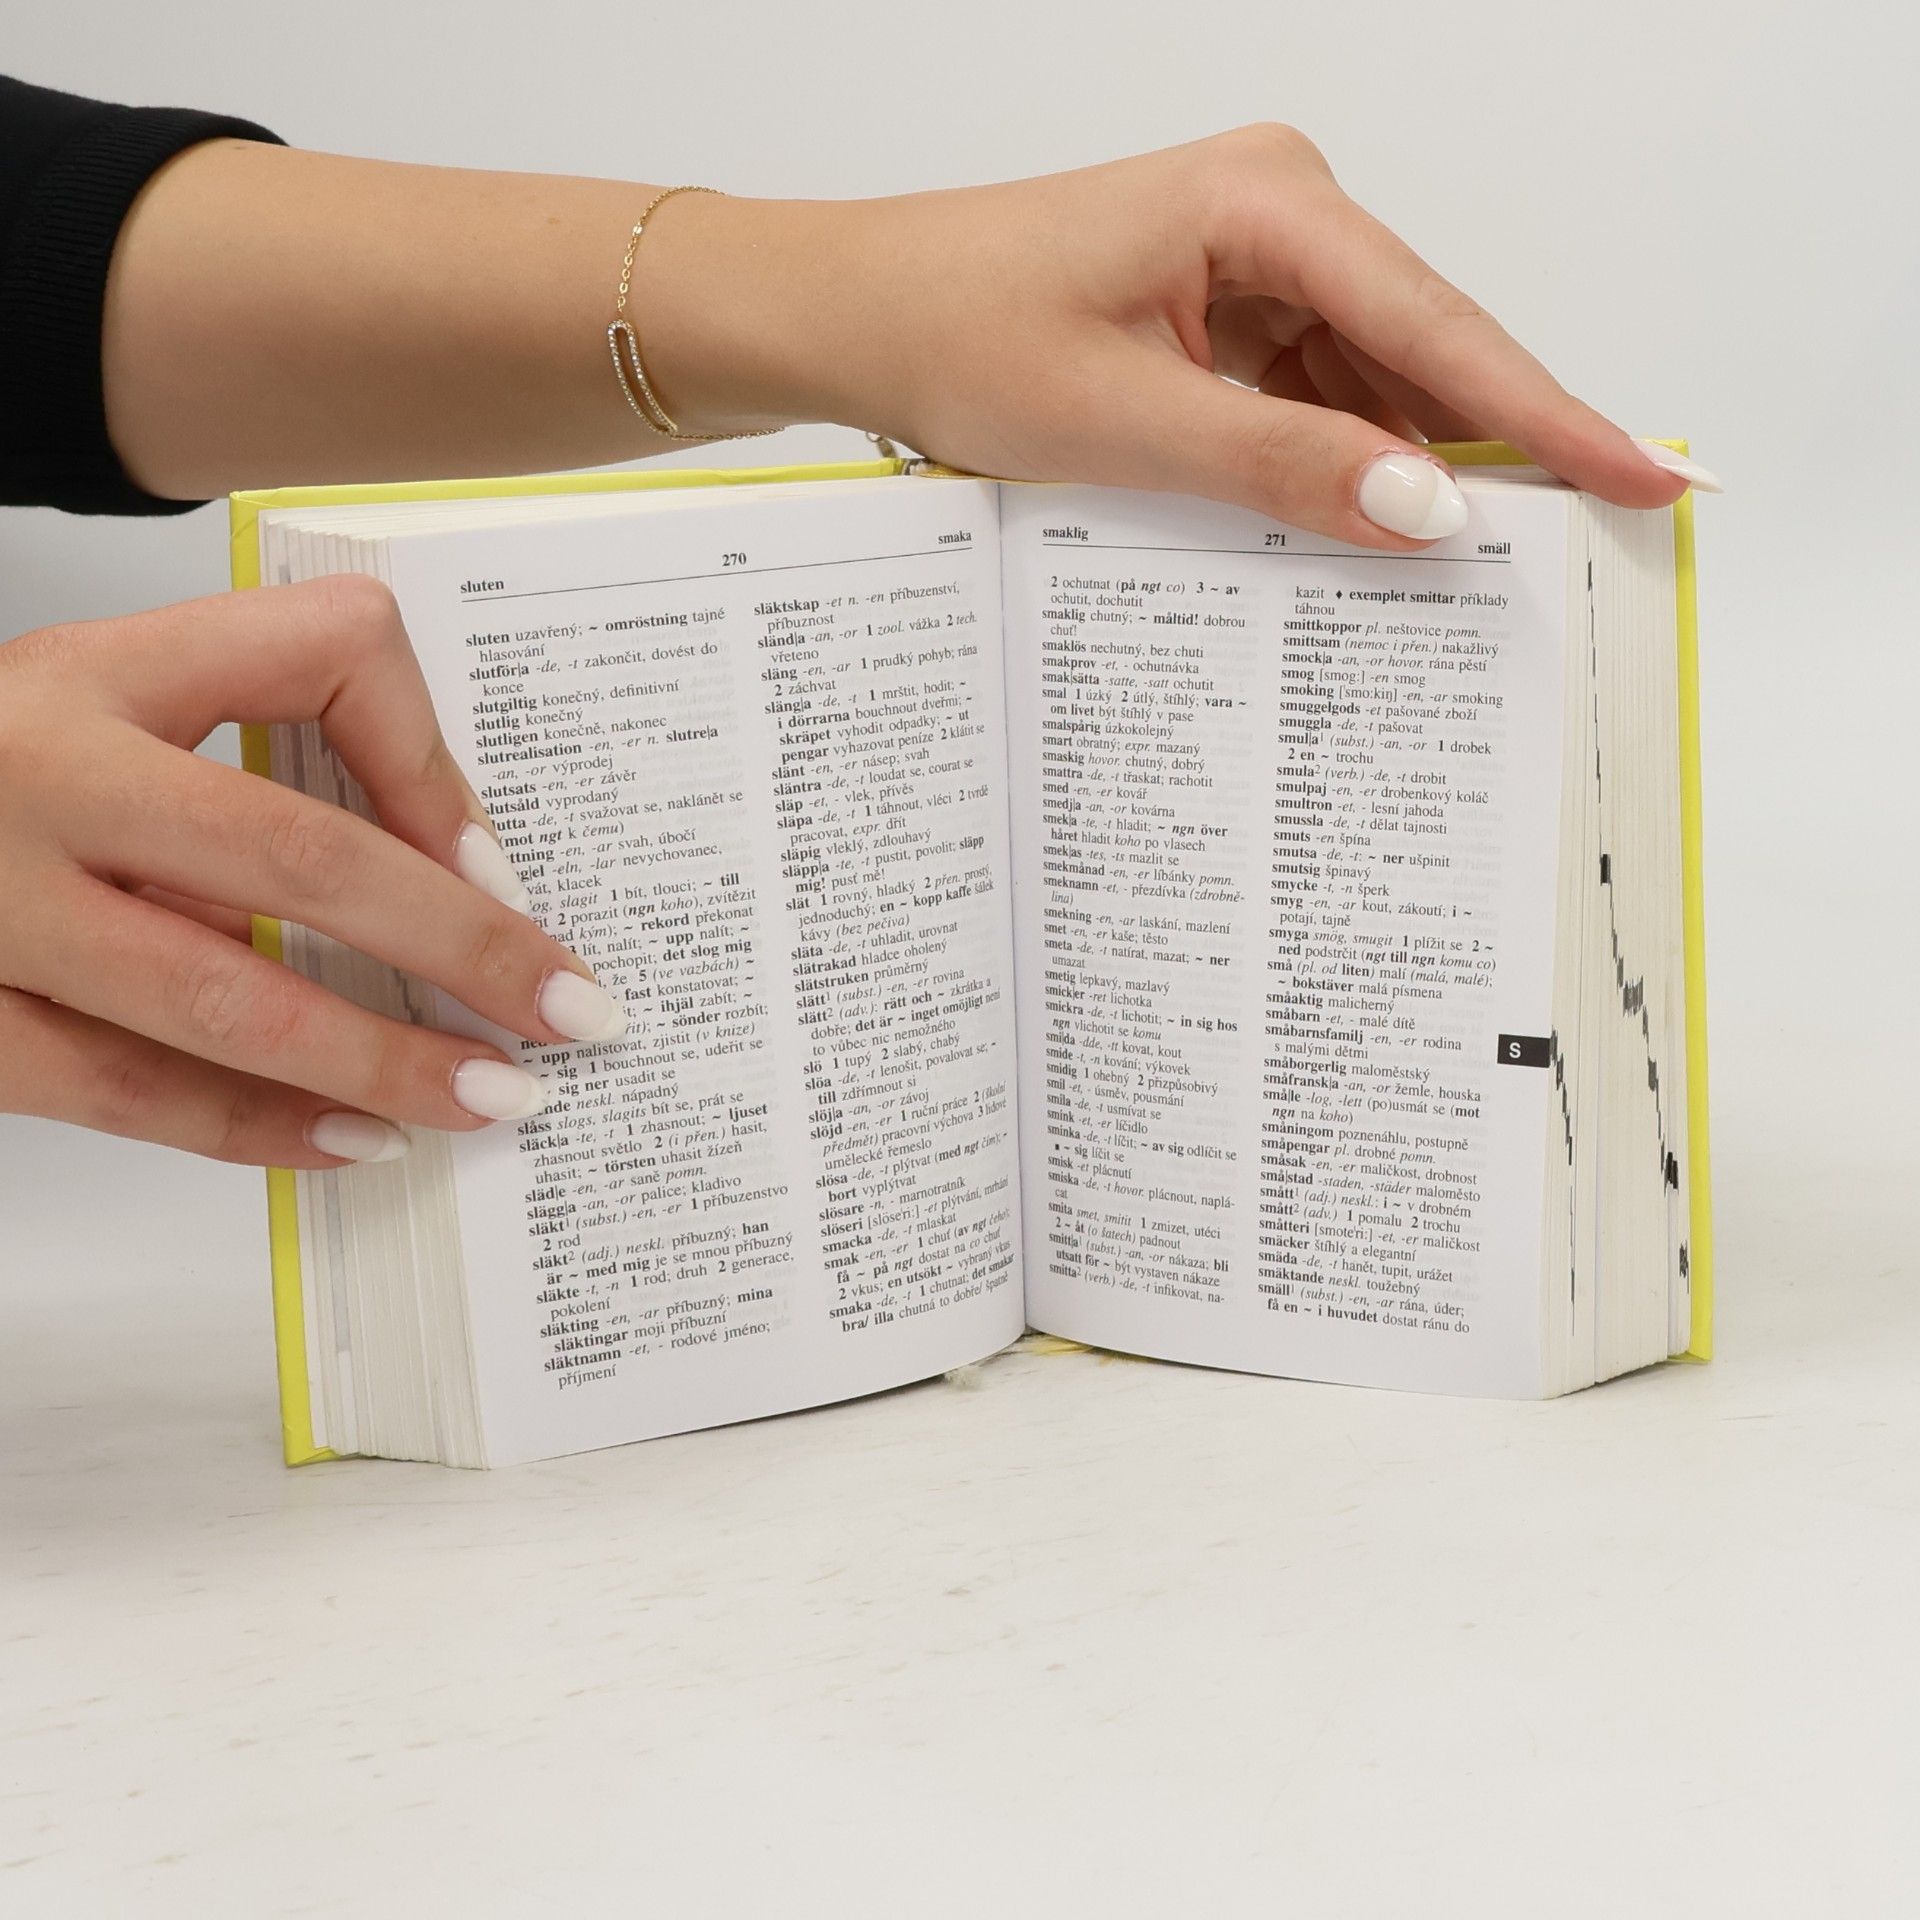 sluten
270
smaka
sluten uzavřený; ~ omröstning tajné
hlasování
slutför|a -de, -t zakončit, dovést do
konce
slutgiltig konečný, definitivní
slutlig konečný
slutligen konečně, nakonec
slutrealisation -en, -er n. slutre|a
-an, -or výprodej
slutsats -en, -er závěr
slutsåld vyprodaný
lutta -de, -t svažovat se, naklánět se
(mot ngt k čemu)
ttning -en, -ar svah, úbočí
g|el -eln, -lar nevychovanec,
vát, klacek
og, slagit 1 bít, tlouci; ~ till
it 2 porazit (ngn koho), zvítězit
nad kým); ~ rekord překonat
3 lít, nalít; ~ upp nalít; ~
pochopit; det slog mig
i, že 5 (ve vazbách) ~
~ fast konstatovat; ~
it; ~ ihjäl zabít; ~
řit); ~ sönder rozbít;
ned
~ upp nalistovat, zjistit (v knize)
~ sig 1 bouchnout se, udeřit se
sig ner usadit se
ende neskl. nápadný
slåss slogs, slagits bít se, prát se
släck|a -te, -t 1 zhasnout; ~ ljuset
zhasnout světlo 2 (i přen.) hasit,
uhasit; ~ törsten uhasit žízeň
släd|e -en, -ar saně pomn.
slägg|a -an, -or palice; kladivo
släkt¹ (subst.) -en, -er 1 příbuzenstvo
2 rod
släkt² (adj.) neskl. příbuzný; han
är ~ med mig je se mnou příbuzný
släkte -t, -n 1 rod; druh 2 generace,
pokolení
släkting -en, -ar příbuzný; mina
släktingar moji příbuzní
släktnamn -et, - rodové jméno;
příjmení
släktskap -et n. -en příbuzenství,
příbuznost
sländ|a -an, -or 1 zool. vážka 2 tech.
vřeteno
släng -en, -ar 1 prudký pohyb; rána
2 záchvat
släng|a -de, -t 1 mrštit, hodit; ~
i dörrarna bouchnout dveřmi; ~
skräpet vyhodit odpadky; ~ ut
pengar vyhazovat peníze 2 klátit se
slänt -en, -er násep; svah
släntra -de, -t loudat se, courat se
släp -et, - vlek, přívěs
släpa -de, -t 1 táhnout, vléci 2 tvrdě
pracovat, expr. dřít
släpig vleklý, zdlouhavý
släpp|a -te, -t pustit, povolit; släpp
mig! pusť mě!
slät 1 rovný, hladký 2 přen. prostý,
jednoduchý; en ~ kopp kaffe šálek
kávy (bez pečiva)
släta -de, -t uhladit, urovnat
slätrakad hladce oholený
slätstruken průměrný
slätt¹ (subst.) -en, -er rovina
slätt² (adv.): rätt och ~ zkrátka a
dobře; det är ~ inget omöjligt není
to vůbec nic nemožného
slö 1 tupý 2 slabý, chabý
slöa -de, -t lenošit, povalovat se; ~
till zdřímnout si
slöj|a -an, -or závoj
slöjd -en, -er 1 ruční práce 2 (školní
předmět) pracovní výchova 3 lidové
umělecké řemeslo
slösa -de, -t plýtvat (med ngt čím); ~
bort vyplýtvat
slösare -n, - marnotratník
slöseri [slöse'ri:] -et plýtvání, mrhání
smacka -de, -t mlaskat
smak -en, -er 1 chuť (av ngt čeho);
få ~ på ngt dostat na co chuť
2 vkus; en utsökt ~ vybraný vkus
smaka -de, -t 1 chutnat; det smakar
bra/ illa chutná to dobře/ špatně
smaklig
271
smäll
2 ochutnat (på ngt co) 3 ~ av
ochutit, dochutit
smaklig chutný; ~ måltid! dobrou
chuť!
smaklös nechutný, bez chuti
smakprov -et, - ochutnávka
smak|sätta -satte, -satt ochutit
smal 1 úzký 2 útlý, štíhlý; vara ~
om livet být štíhlý v pase
smalspårig úzkokolejný
smart obratný; expr. mazaný
smaskig hovor. chutný, dobrý
smattra -de, -t třaskat; rachotit
smed -en, -er kovář
smedj|a -an, -or kovárna
smek|a -te, -t hladit; ~ ngn över
håret hladit koho po vlasech
smek|as -tes, -ts mazlit se
smekmånad -en, -er líbánky pomn.
smeknamn -et, - přezdívka (zdrobně-
lina)
smekning -en, -ar laskání, mazlení
smet -en, -er kaše; těsto
smeta -de, -t natírat, mazat; ~ ner
umazat
smetig lepkavý, mazlavý
smick|er -ret lichotka
smickra -de, -t lichotit; ~ in sig hos
ngn vlichotit se komu
smi|da -dde, -tt kovat, kout
smide -t, -n kování; výkovek
smidig 1 ohebný 2 přizpůsobivý
smil -et, - úsměv, pousmání
smila -de, -t usmívat se
smink -et, -er líčidlo
sminka -de, -t líčit; ~ av sig odlíčit se
▪ ~ sig líčit se
smisk -et plácnutí
smiska -de, -t hovor. plácnout, naplá-
cat
smita smet, smitit 1 zmizet, utéci
2 ~ åt (o šatech) padnout
smitt|a¹ (subst.) -an, -or nákaza; bli
utsatt för ~ být vystaven nákaze
smitta² (verb.) -de, -t infikovat, na-
kazit ♦ exemplet smittar příklady
táhnou
smittkoppor pl. neštovice pomn.
smittsam (nemoc i přen.) nakažlivý
smock|a -an, -or hovor. rána pěstí
smog [smog:] -en smog
smoking ['smo:kiŋ] -en, -ar smoking
smuggelgods -et pašované zboží
smuggla -de, -t pašovat
smul|a¹ (subst.) -an, -or 1 drobek
2 en ~ trochu
smula² (verb.) -de, -t drobit
smulpaj -en, -er drobenkový koláč
smultron -et, - lesní jahoda
smussla -de, -t dělat tajnosti
smuts -en špína
smutsa -de, -t: ~ ner ušpinit
smutsig špinavý
smycke -t, -n šperk
smyg -en, -ar kout, zákoutí; i ~
potají, tajně
smyga smög, smugit 1 plížit se 2 ~
ned podstrčit (ngt till ngn komu co)
små (pl. od liten) malí (malá, malé);
~ bokstäver malá písmena
småaktig malicherný
småbarn -et, - malé dítě
småbarnsfamilj -en, -er rodina
s malými dětmi
småborgerlig maloměstský
småfransk|a -an, -or žemle, houska
små|le -log, -lett (po)usmát se (mot
ngn na koho)
småningom poznenáhlu, postupně
småpengar pl. drobné pomn.
småsak -en, -er maličkost, drobnost
små|stad -staden, -städer maloměsto
smått¹ (adj.) neskl.: i ~ v drobném
smått² (adv.) 1 pomalu 2 trochu
småtteri [smote'ri:] -et, -er maličkost
smäcker štíhlý a elegantní
smäda -de, -t hanět, tupit, urážet
smäktande neskl. toužebný
smäll¹ (subst.) -en, -ar rána, úder;
få en ~ i huvudet dostat ránu do
S